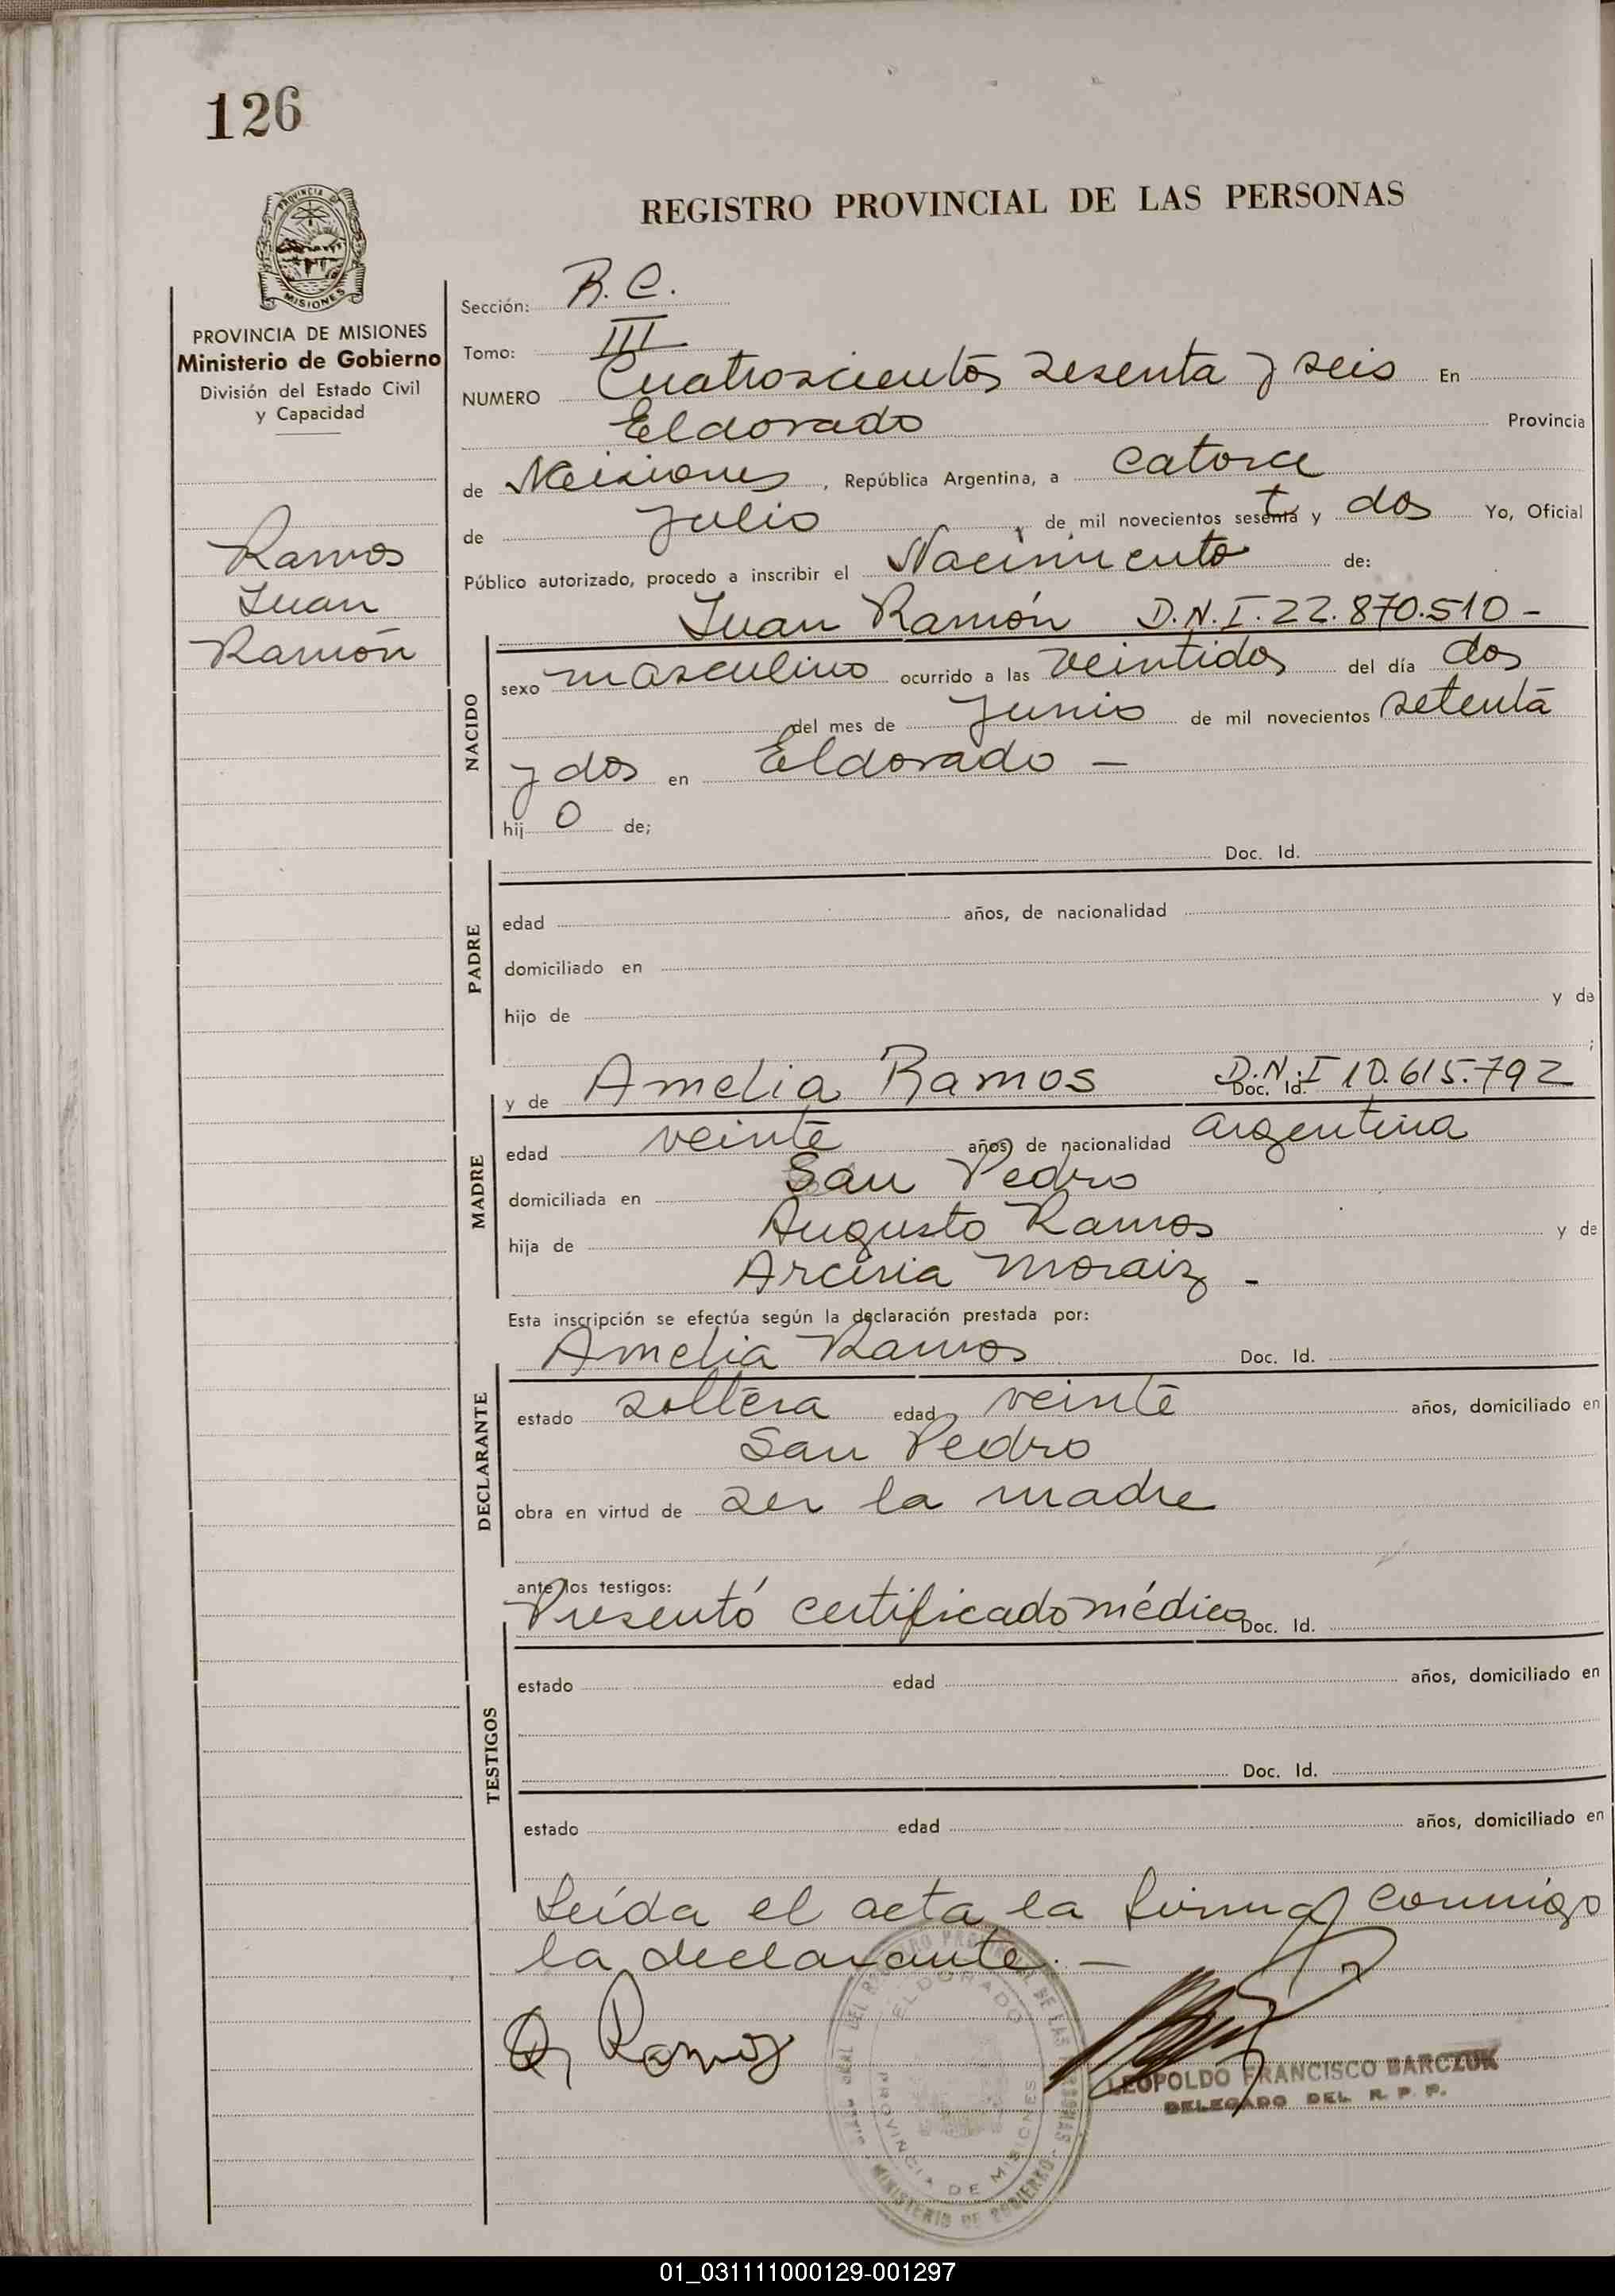 126
REGISTRO PROVINCIAL DE LAS PERSONAS
PROVINCIA DE MISIONES
Ministerio de Gobierno
División del Estado Civil
y Capacidad
Ramos
Juan
Ramón
Sección: R.C.
Tomo: III
NUMERO Cuatroscientos sesenta y seis En
Eldorado Provincia
de Misiones, República Argentina, a catorce
de Julio, de mil novecientos setenta y dos Yo, Oficial
Público autorizado, procedo a inscribir el Nacimiento de:
Juan Ramón D.N.I. 22.870.510 -
NACIDO
sexo masculino ocurrido a las veintidos del día dos
del mes de Junio de mil novecientos setenta
y dos en Eldorado —
hij o de;
PADRE
Doc. Id.
edad años, de nacionalidad
domiciliado en
hijo de y de
;
MADRE
y de Amelia Ramos Doc. Id. D.N.I 10.615.792
edad veinte años, de nacionalidad argentina
domiciliada en San Pedro
hija de Augusto Ramos y de
Arciria Moraiz -
Esta inscripción se efectúa según la declaración prestada por:
DECLARANTE
Amelia Ramos Doc. Id.
estado soltera edad veinte años, domiciliado en
San Pedro
obra en virtud de ser la madre
ante los testigos:
TESTIGOS
Presentó certificado médico Doc. Id.
estado edad años, domiciliado en
Doc. Id.
estado edad años, domiciliado en
Leída el acta la firma conmigo
la declarante. —
Ramos
ELDORADO
PROVINCIA DE MISIONES
MINISTERIO DE GOBIERNO
LEOPOLDO FRANCISCO BARCZUK
DELEGADO DEL R. P. P.
01_031111000129-001297